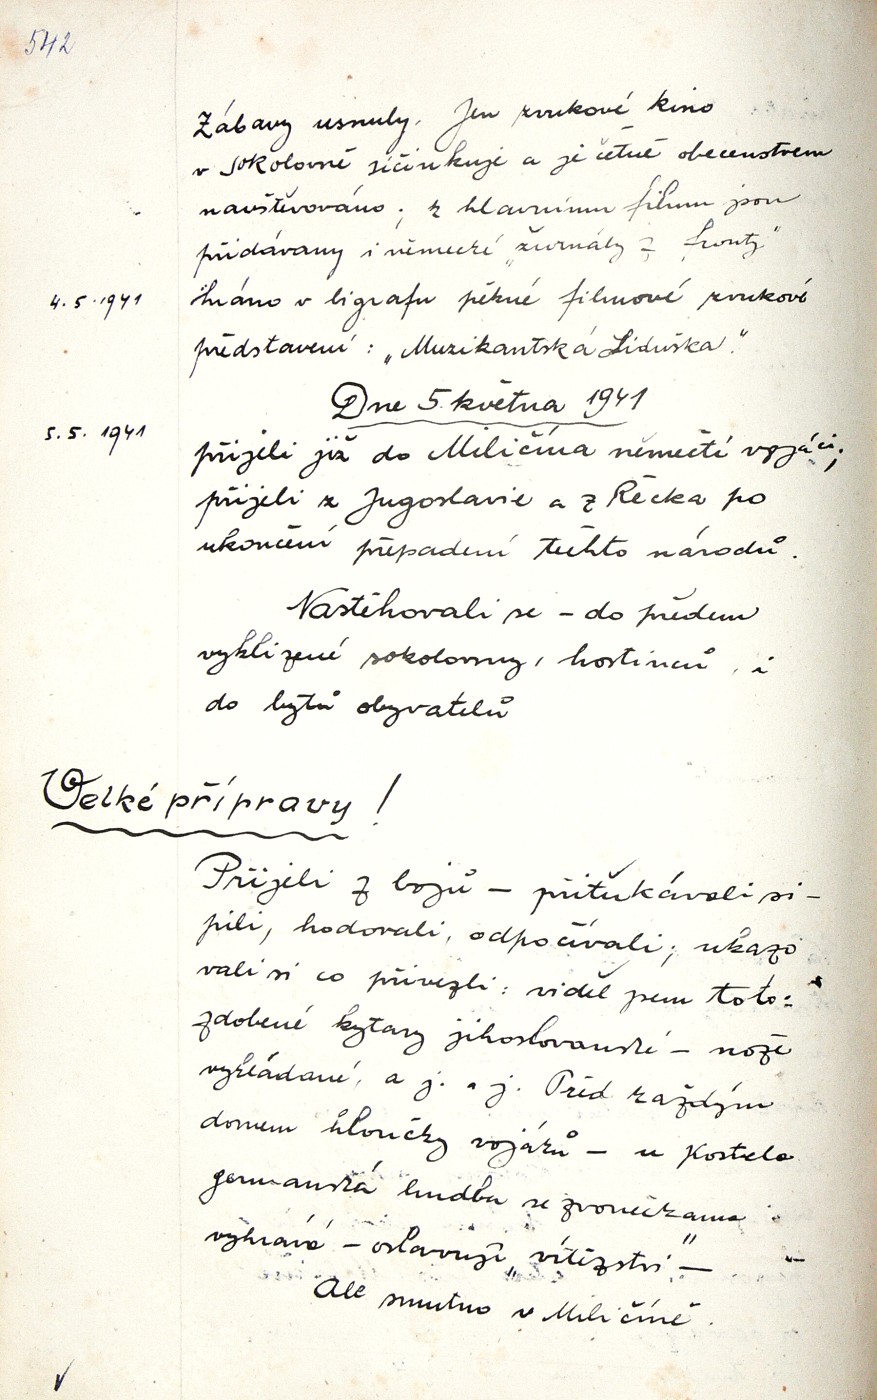 542
Zábavy usnuly. Jen zvukové kino
v Sokolovně účinkuje a je četně obecenstvem
navštěvováno; k hlavnímu filmu jsou
přidávany i německé „žurnály z fronty"
4.5.1941 Hráno v bigrafu pěkné filmové zvukové
představení: „Muzikantská Liduška".
Dne 5. května 1941
5.5.1941 přijeli již do Miličína němečtí vojáci;
přijeli z Jugoslavie a z Řecka po
ukončení přepadení těchto národů.
Nastěhovali se – do předem
vyklizené sokolovny, hostinců, i
do bytů obyvatelů
Velké přípravy!
Přijeli z bojů – přiťukávali si –
pili, hodovali, odpočívali; ukazo
vali si co přivezli: viděl jsem toto:
zdobené kytary jihoslovanské – nože
vykládané, a j. a j. Před každým
domem hloučky vojáků – u kostela
germanská hudba se zvonečkama
vyhrává – oslavují „vítězství" –
Ale smutno v Miličíně.